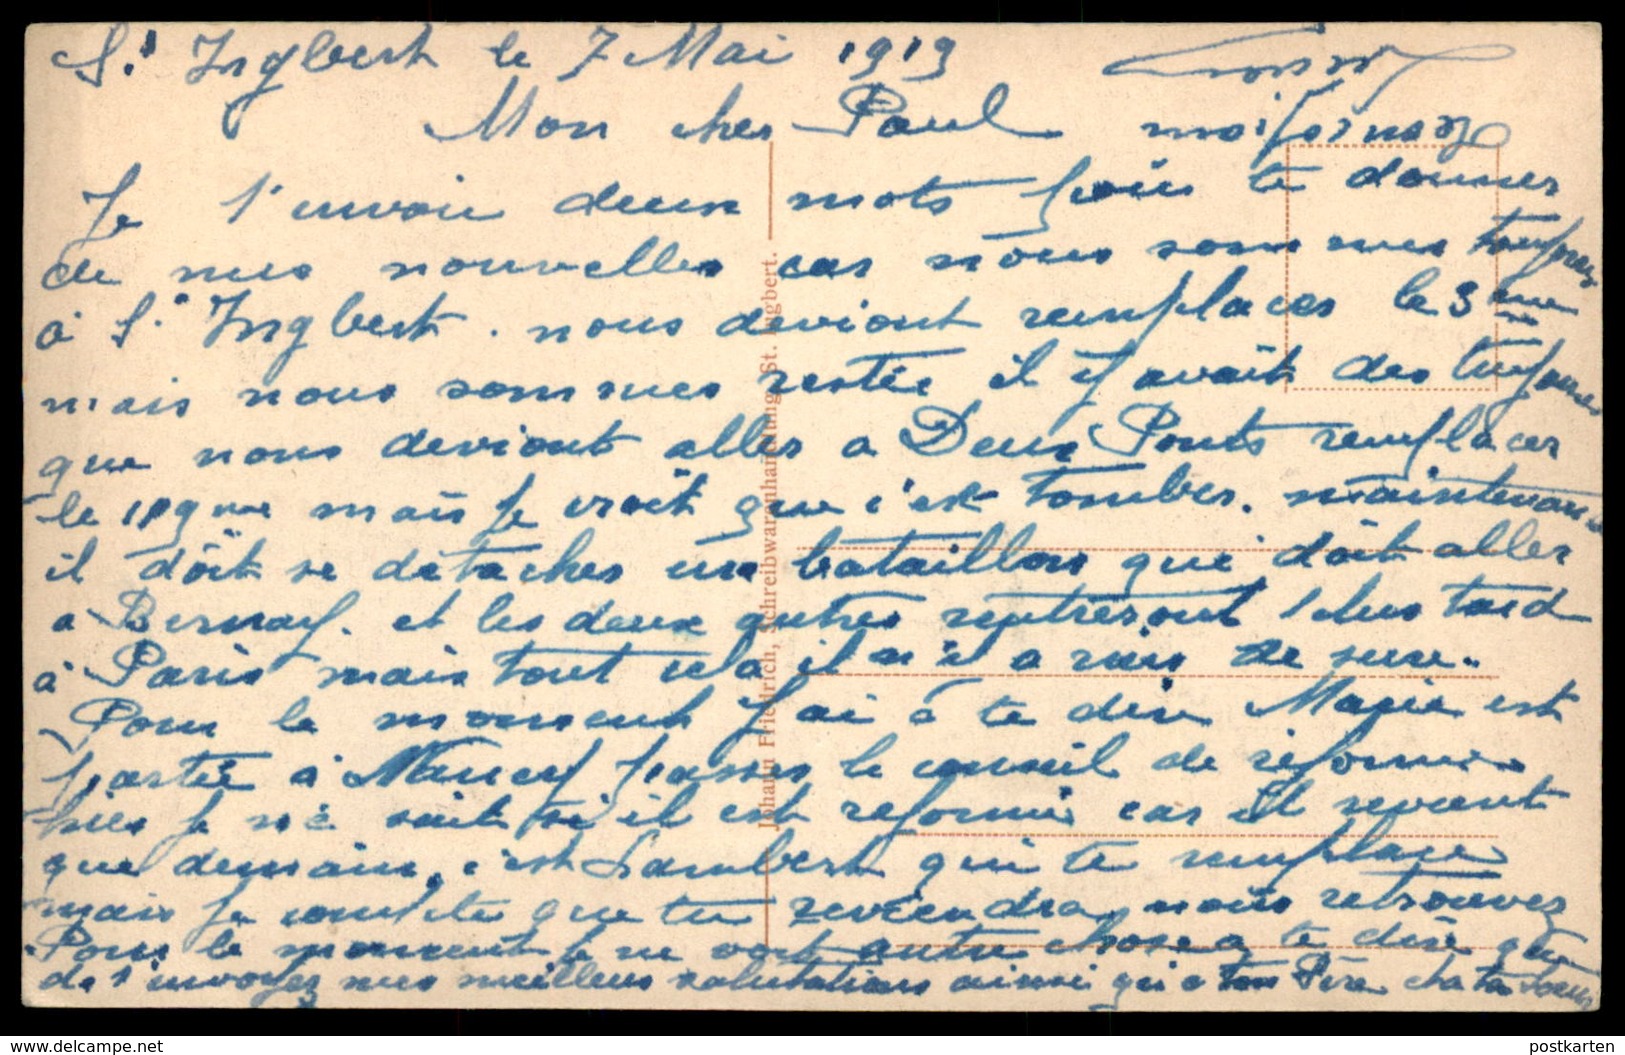 St Ingbert le 7 Mai 1919
Mon cher Paul
Je t'envoie deux mots pour te donner
de mes nouvelles car nous sommes toujours
à St Ingbert. nous deviont remplacer le 3 eme
mais nous sommes restée il y avait des
que nous deviont aller a Deux Ponts remplacer
le mais je croit que c'est tomber. maintenant
il doit se détacher un bataillon qui doit aller
a Bernay. et les deux autres rentreront plus tard
à Paris mais tout cela il n'i a rien de sure.
Pour le moment j'ai à te dire Marie est
partie à Nancy passer le conseil de reforme
hier je ne sait si il est reformé car il revient
que demain. c'est Lambert qui te remplace
mais je compte que tu reviendra nous retrouver
Pour le moment je ne voit autre chose a te dire que
de t'envoyer mes meilleurs salutations ainsi qu'a ton Père et a ta Soeur
Johann Friedrich, Schreibwarenhandlung, St. Ingbert.
www.delcampe.net
postkarten